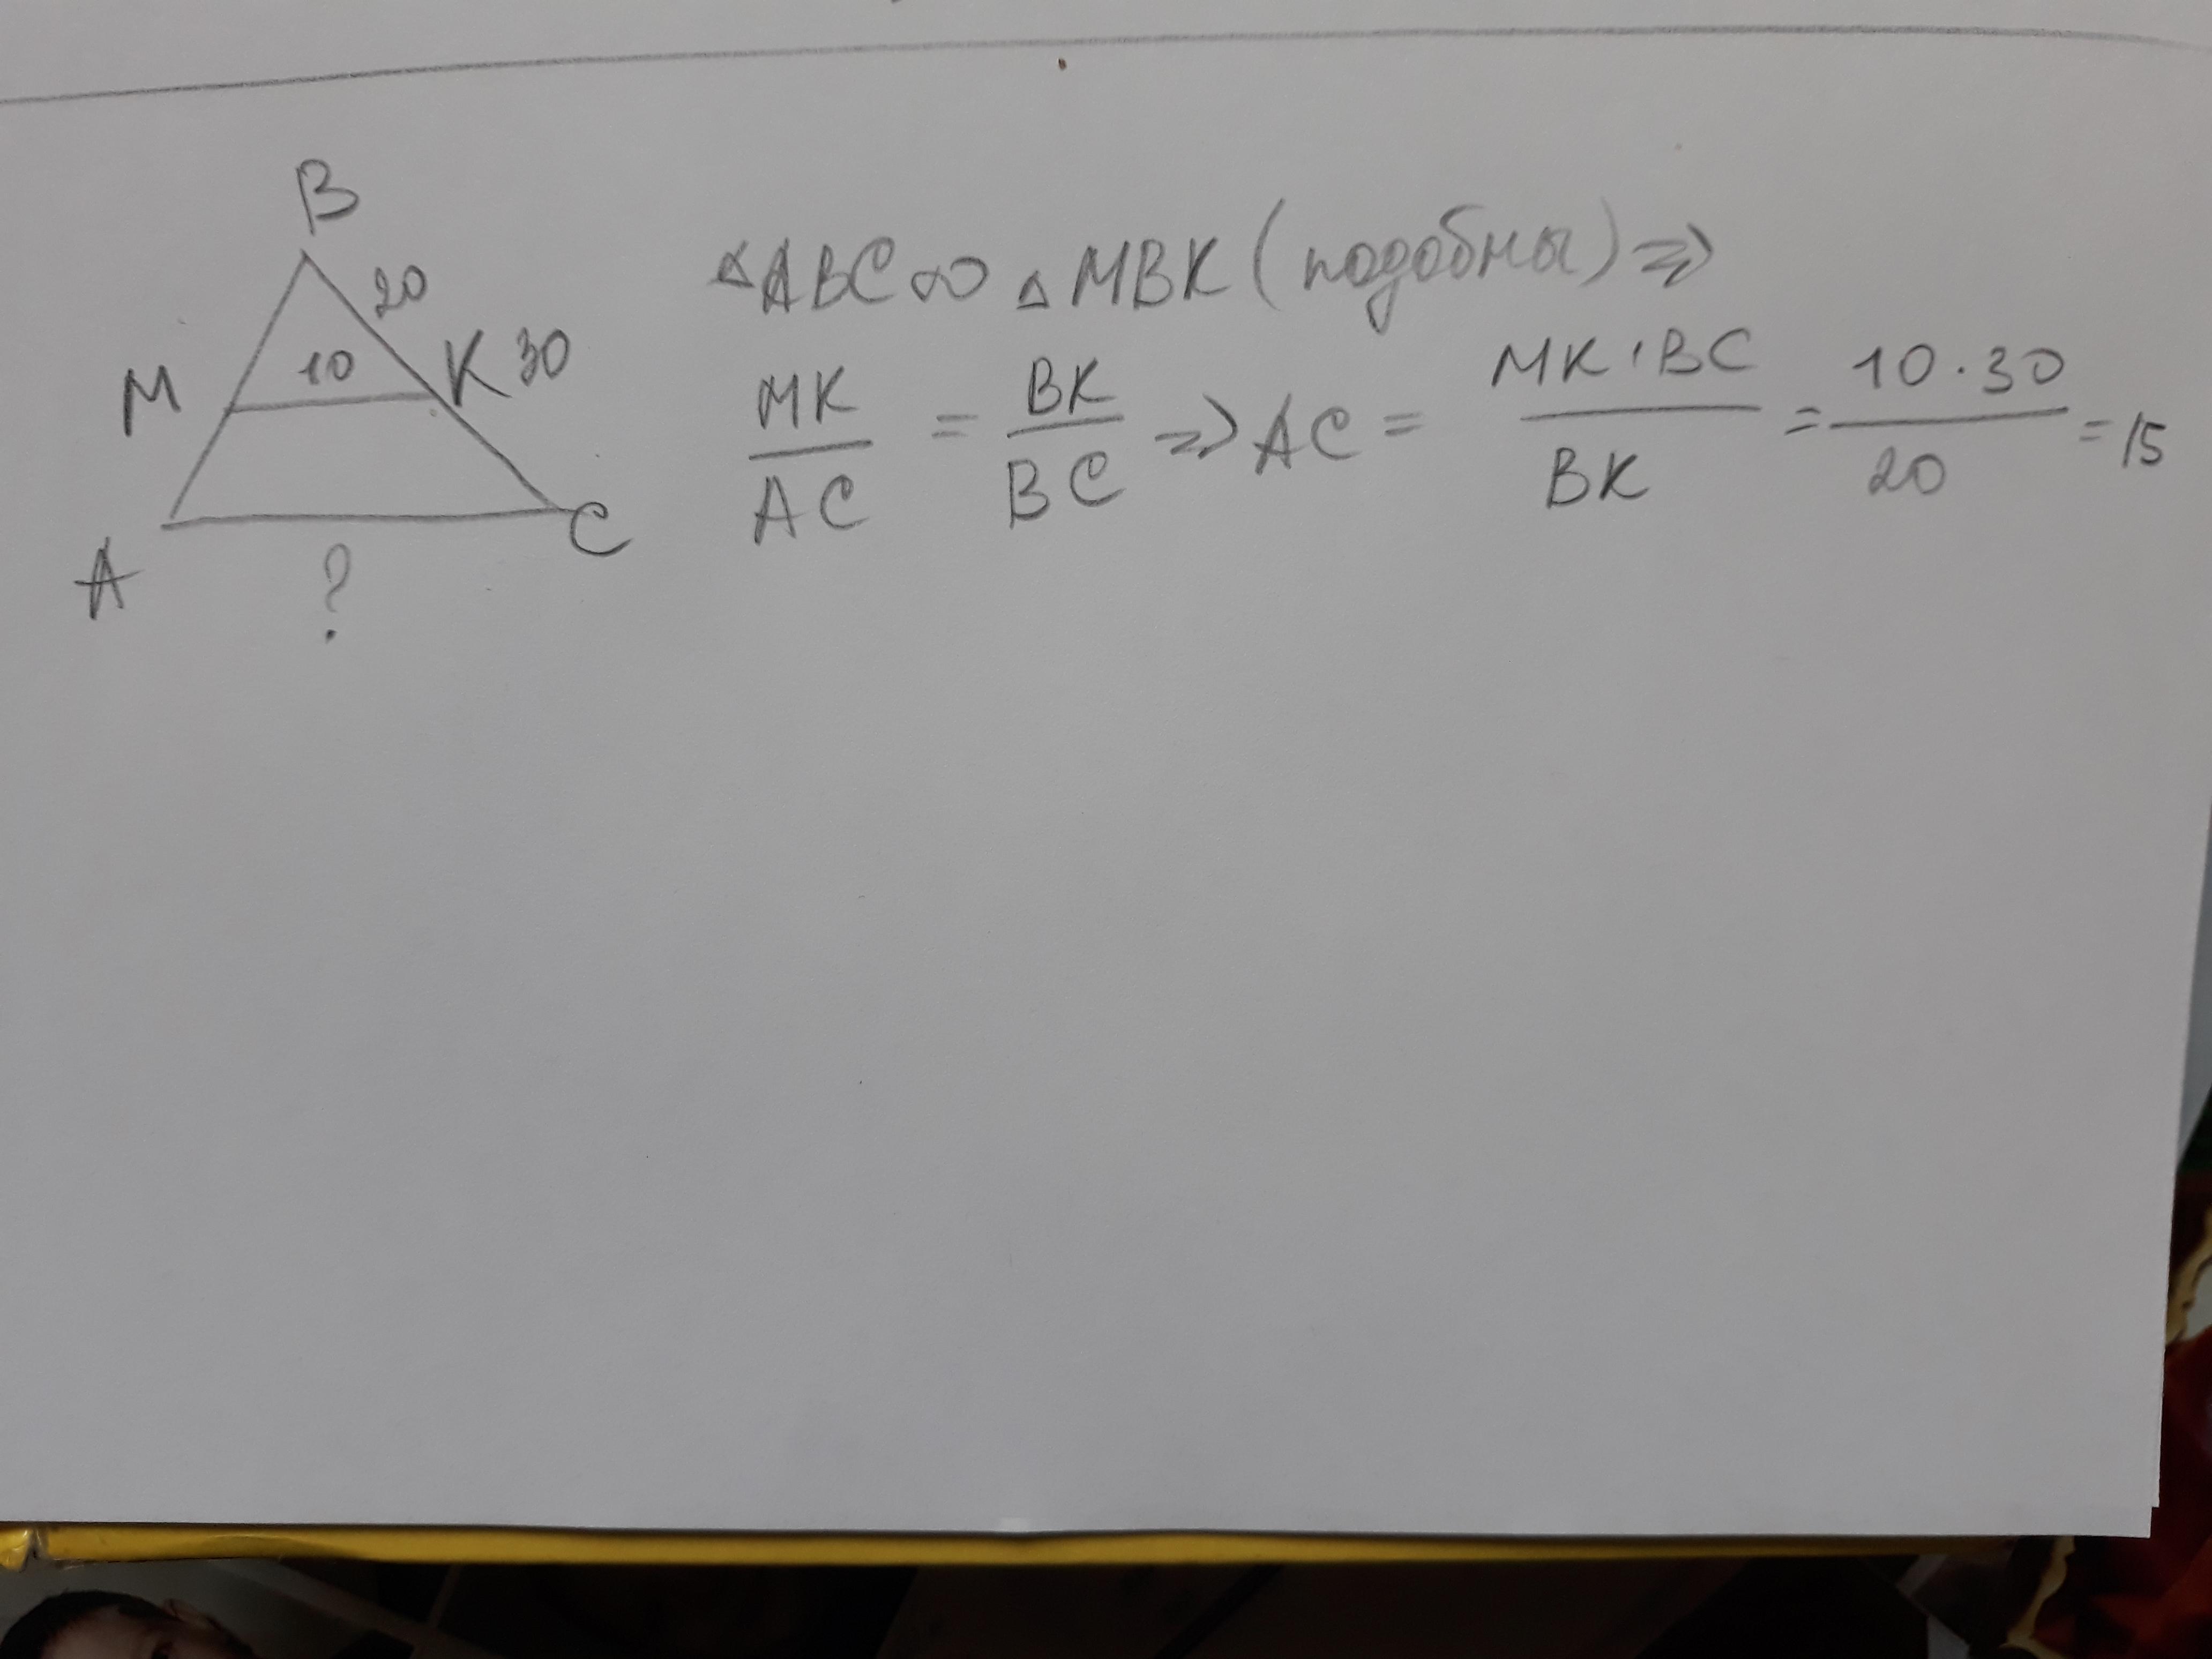 B
20
M
10
K 30
A
?
C
△ABC ∞ △MBK (подобны) ⇒
MK/AC = BK/BC ⇒ AC = MK·BC/BK = 10·30/20 = 15